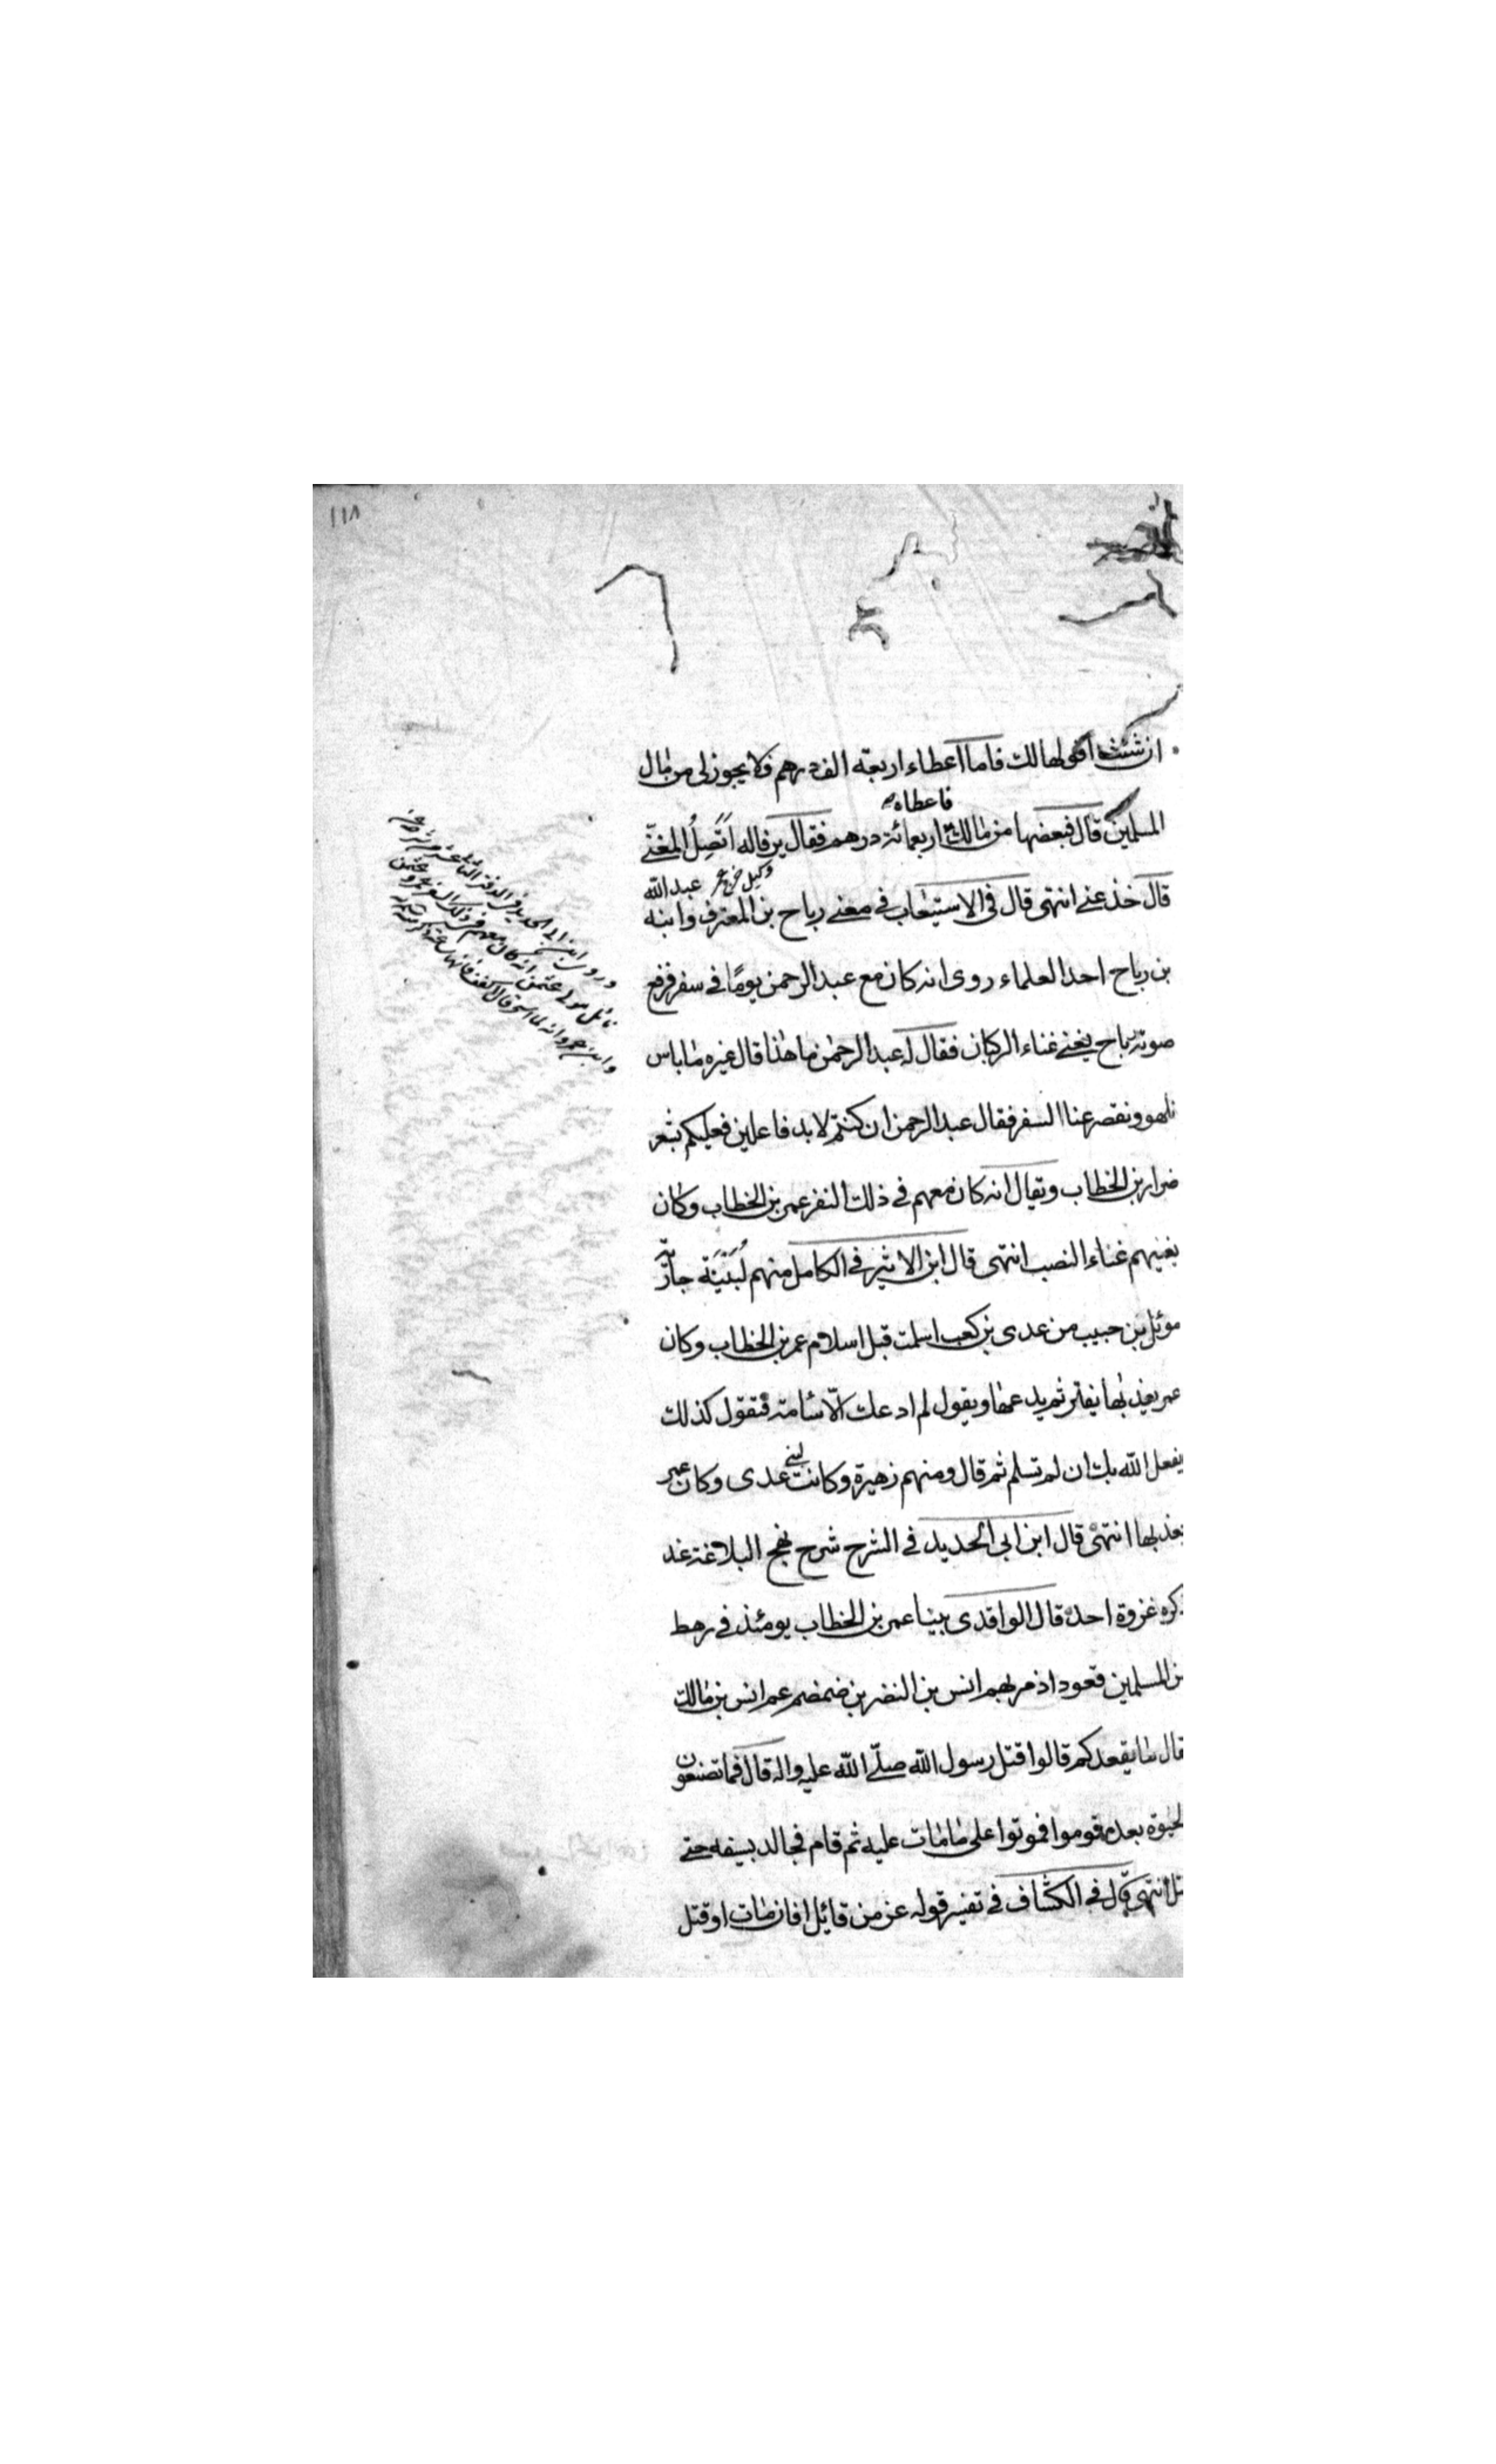 ١١٨
ان شئت اقولها لك فاما اعطاء اربعة الف درهم فلا يجوز لى من مال
فاعطاه
المسلمين قال فبعضها من مالك اربعمائة درهم فقال يرفا له اتصل المغنى
وكيل خرج عمر عبد الله
قال خذ عنى انتهى قال فى الاستيعاب فى معنى رباح بن المعترف وابنه
بن رباح احد العلماء روى انه كان مع عبد الرحمن يوما فى سفر فرفع
صوته رباح يغنى غناء الركبان فقال له عبد الرحمن ما هذا قال غيره ما باس
نلهو ونقصر عنا السفر فقال عبد الرحمن ان كنتم لا بد فاعلين فعليكم بشعر
ضرار بن الخطاب ويقال انه كان معهم فى ذلك النفر عمر بن الخطاب وكان
يغنيهم غناء النصب انتهى قال ابن الاثير فى الكامل منهم لبينة جارية
موئل بن حبيب من عدى بن كعب اسلمت قبل اسلام عمر بن الخطاب وكان
عمر يعذبها يفتر ثم يدعها ويقول لم ادعك الا سامة فتقول كذلك
يفعل الله بك ان لم تسلم ثم قال ومنهم زهيرة وكانت لبنى عدى وكان عمر
يعذبها انتهى قال ابن ابى الحديد فى الشرح شرح نهج البلاغة عند
ذكره غزوة احد قال الواقدى بينا عمر بن الخطاب يومئذ فى رهط
من المسلمين قعود اذ مر بهم انس بن النضر بن ضمضم عم انس بن مالك
فقال ما يقعدكم قالوا قتل رسول الله صلى الله عليه واله قال فما تصنعون
بالحيوة بعده قوموا فموتوا على ما مات عليه ثم قام فجالد بسيفه حتى
قتل انتهى قال فى الكشاف فى تفسير قوله عز من قائل افان مات او قتل